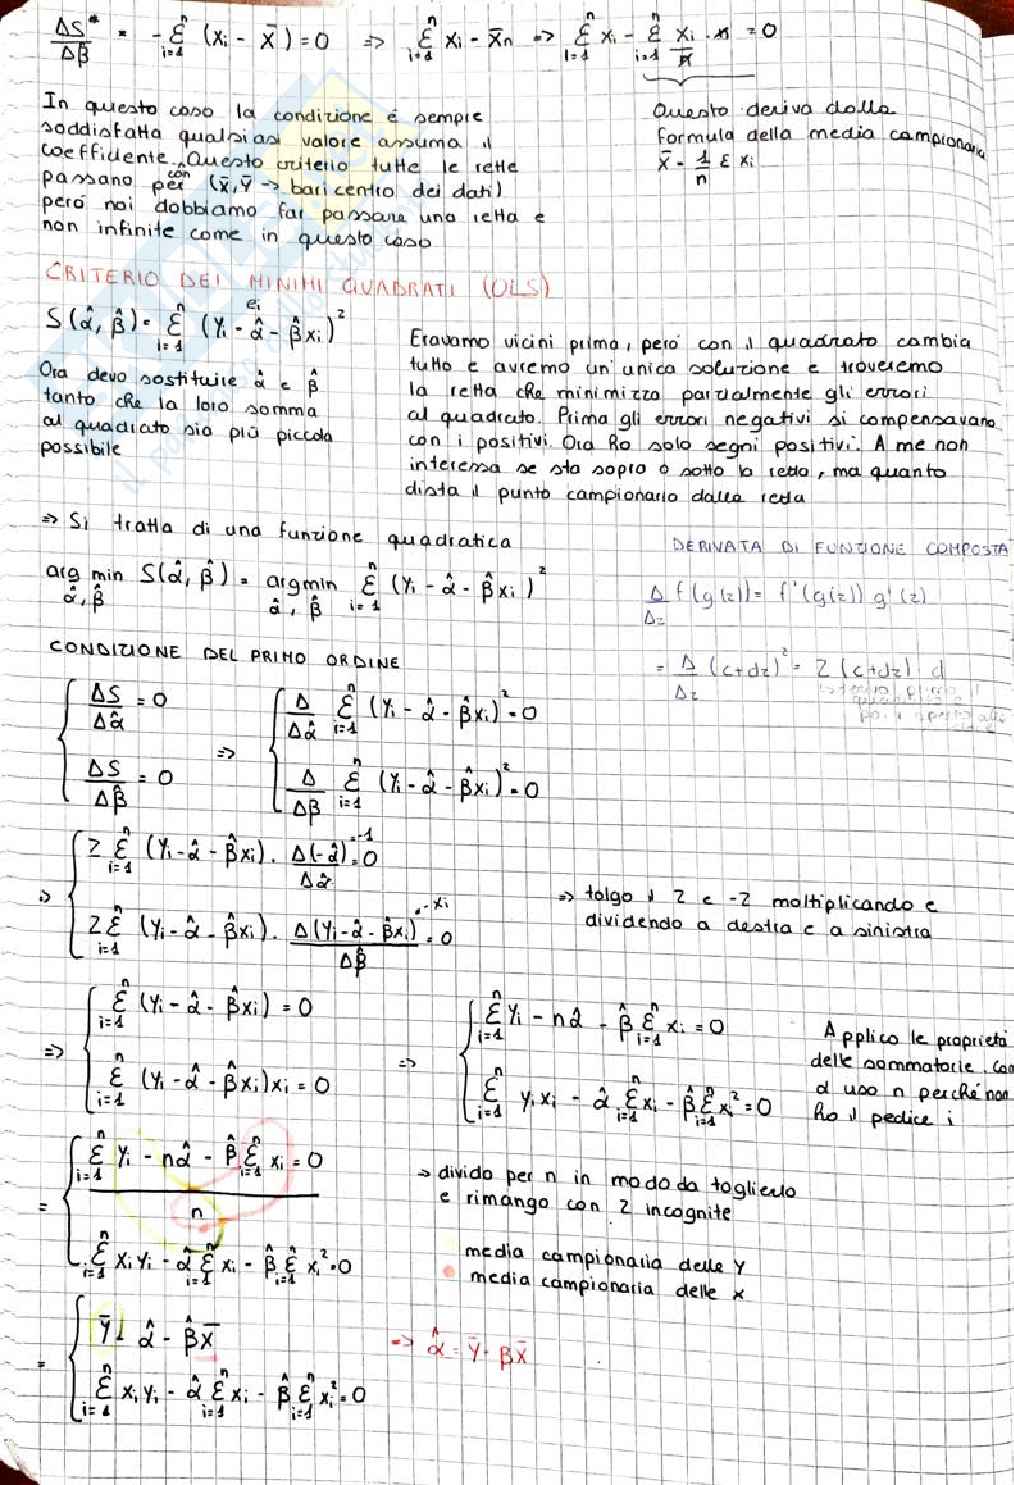 ΔS*/Δβ̂ = -Σ(i=1..n) (xi - x̄) = 0 ⇒ Σ(i=1..n) xi - x̄n ⇒ Σ(i=1..n) xi - Σ(i=1..n) xi/n · n = 0
In questo caso la condizione é sempre
soddisfatta qualsiasi valore assuma il
coefficiente. con Questo criterio tutte le rette
passano per (x̄, ȳ → baricentro dei dati)
peró noi dobbiamo far passare una retta e
non infinite come in questo caso
Questo deriva dalla
formula della media campionaria
x̄ = 1/n Σ xi
CRITERIO DEI MINIMI QUADRATI (OLS)
S(α̂, β̂) = Σ(i=1..n) (Yi - α̂ - β̂xi)² ei
Ora devo sostituire α̂ e β̂
tanto che la loro somma
al quadrato sia piú piccola
possibile
Eravamo vicini prima, peró con il quadrato cambia
tutto e avremo un'unica soluzione e troveremo
la retta che minimizza parzialmente gli errori
al quadrato. Prima gli errori negativi si compensavano
con i positivi. Ora ho solo segni positivi. A me non
interessa se sta sopra o sotto la retta, ma quanto
dista il punto campionario dalla retta
⇒ Si tratta di una funzione quadratica
arg min α̂, β̂ S(α̂, β̂) = argmin α̂, β̂ Σ(i=1..n) (Yi - α̂ - β̂xi)²
DERIVATA DI FUNZIONE COMPOSTA
Δ/Δz f(g(z)) = f'(g(z)) g'(z)
= Δ/Δz (c+dz)² = 2 (c+dz) d
CONDIZIONE DEL PRIMO ORDINE
{ ΔS/Δα̂ = 0 ⇒ { Δ/Δα̂ Σ(i=1..n) (Yi - α̂ - β̂xi)² = 0
{ ΔS/Δβ̂ = 0 { Δ/Δβ Σ(i=1..n) (Yi - α̂ - β̂xi)² = 0
⇒ { 2 Σ(i=1..n) (Yi - α̂ - β̂xi) · Δ(-α̂)/Δα̂ = 0 -1
{ 2 Σ(i=1..n) (Yi - α̂ - β̂xi) · Δ(Yi - α̂ - β̂xi)/Δβ̂ = 0 -xi
⇒ tolgo il 2 e -2 moltiplicando e
dividendo a destra e a sinistra
⇒ { Σ(i=1..n) (Yi - α̂ - β̂xi) = 0 ⇒ { Σ(i=1..n) Yi - nα̂ - β̂ Σ(i=1..n) xi = 0
{ Σ(i=1..n) (Yi - α̂ - β̂xi)xi = 0 { Σ(i=1..n) yixi - α̂ Σ(i=1..n) xi - β̂ Σ(i=1..n) xi² = 0
Applico le proprietá
delle sommatorie. Con
α uso n perché non
ho il pedice i
= { Σ(i=1..n) Yi - nα̂ - β̂ Σ(i=1..n) xi = 0 / n
{ Σ(i=1..n) xiYi - α̂ Σ(i=1..n) xi - β̂ Σ(i=1..n) xi² = 0
→ divido per n in modo da toglierlo
e rimango con 2 incognite
media campionaria delle Y
media campionaria delle x
= { Ȳ - α̂ - β̂x̄
{ Σ(i=1..n) xiYi - α̂ Σ(i=1..n) xi - β̂ Σ(i=1..n) xi² = 0
→ α̂ = Ȳ - βx̄